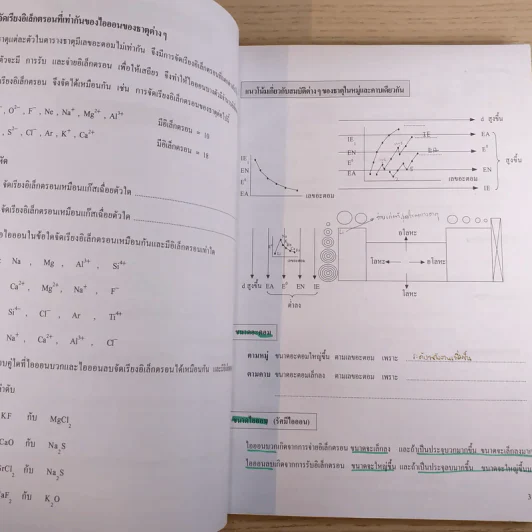 จัดเรียงอิเล็กตรอนที่เท่ากันของไอออนของธาตุต่าง ๆ
ธาตุแต่ละตัวในตารางธาตุมีเลขอะตอมไม่เท่ากัน จึงมีการจัดเรียงอิเล็กตรอน
ตัวจะมี การรับ และจ่ายอิเล็กตรอน เพื่อให้เสถียร จึงทำให้ไอออน
เรียงอิเล็กตรอน จึงจัดได้เหมือนกัน เช่น การจัดเรียงอิเล็กตรอนของธาตุต่อไปนี้
, O²⁻, F⁻, Ne, Na⁺, Mg²⁺, Al³⁺ มีอิเล็กตรอน = 10
, S²⁻, Cl⁻, Ar, K⁺, Ca²⁺ มีอิเล็กตรอน = 18
จัดเรียงอิเล็กตรอนเหมือนแก๊สเฉื่อยตัวใด
จัดเรียงอิเล็กตรอนเหมือนแก๊สเฉื่อยตัวใด
ไอออนในข้อใดจัดเรียงอิเล็กตรอนเหมือนกันและมีอิเล็กตรอนเท่าใด
Na , Mg , Al³⁺ , Si⁴⁺
Ca²⁺ , Mg²⁺ , Na⁺ , F⁻
Si⁴⁻ , Cl⁻ , Ar , Ti⁴⁺
Na⁺ , Ca²⁺ , Al³⁺ , Cl⁻
คู่ใดที่ไอออนบวกและไอออนลบจัดเรียงอิเล็กตรอนได้เหมือนกัน
KF กับ MgCl₂
CaO กับ Na₂S
SrCl₂ กับ Na₂S
CaF₂ กับ K₂O
แนวโน้มเกี่ยวกับสมบัติต่าง ๆ ของธาตุในหมู่และคาบเดียวกัน
IE
EN
E⁰
EA
เลขอะตอม
d สูงขึ้น
EA
EN
E⁰
EN
IE
สูงขึ้น
เลขอะตอม
d สูงขึ้น EA E⁰ EN IE
ต่ำลง
อโลหะ
โลหะ อโลหะ
โลหะ
ขนาดอะตอม
ตามหมู่ ขนาดอะตอมใหญ่ขึ้น ตามเลขอะตอม เพราะ
ตามคาบ ขนาดอะตอมเล็กลง ตามเลขอะตอม เพราะ
ขนาดไอออน (รัศมีไอออน)
ไอออนบวกเกิดจากการจ่ายอิเล็กตรอน ขนาดจะเล็กลง และถ้าเป็นประจุบวกมากขึ้น ขนาดจะเล็กลงมาก
ไอออนลบเกิดจากการรับอิเล็กตรอน ขนาดจะใหญ่ขึ้น และถ้าเป็นประจุลบมากขึ้น ขนาดจะใหญ่ขึ้น
3